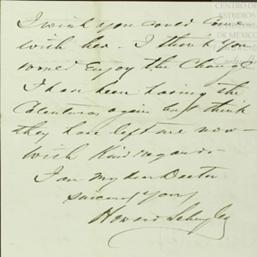 I wish you could come
with her. I think you
would enjoy the change
I have been having the
Calenturas again but think
they have left me now
with kind regards
I am my dear Doctor
sincerely yours
Howard